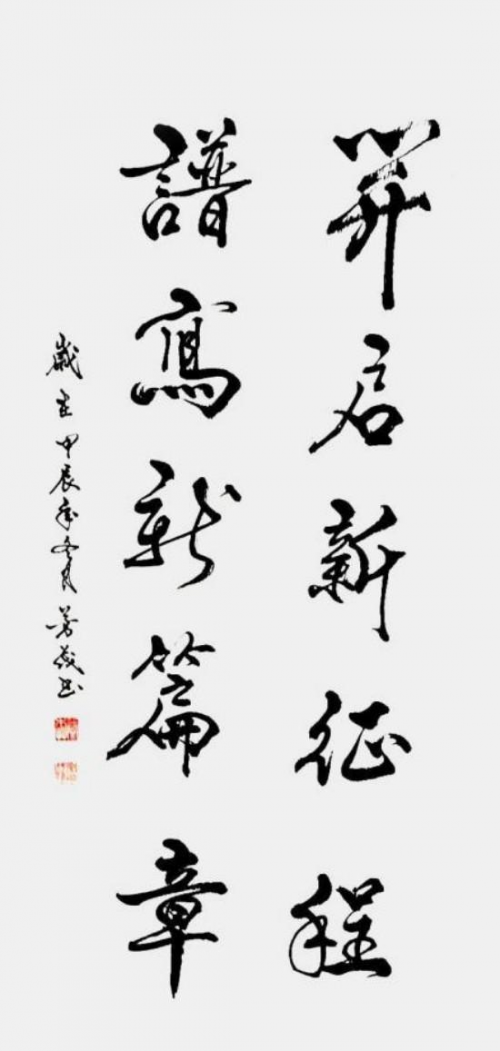 開启新征程
譜寫新篇章
歲在甲辰年冬月